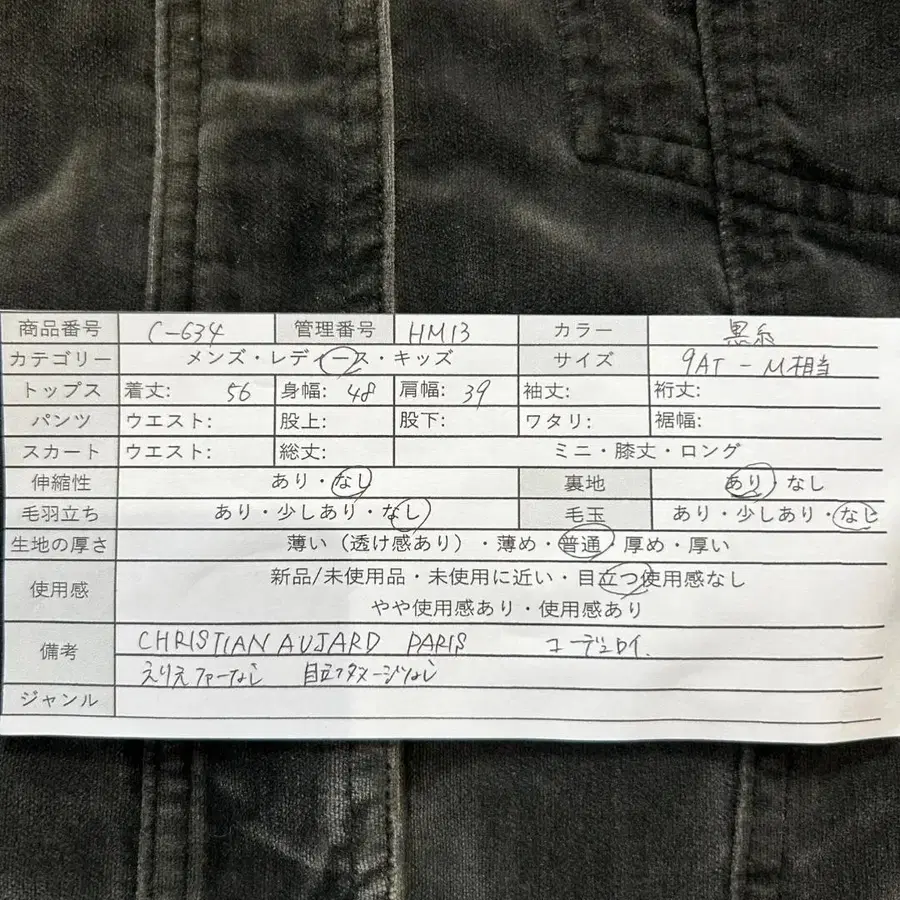 商品番号 C-634 管理番号 HM13 カラー 黒系
カテゴリー メンズ・レディース・キッズ サイズ 9AT - M相当
トップス 着丈: 56 身幅: 48 肩幅: 39 袖丈: 裄丈:
パンツ ウエスト: 股上: 股下: ワタリ: 裾幅:
スカート ウエスト: 総丈: ミニ・膝丈・ロング
伸縮性 あり・なし 裏地 あり・なし
毛羽立ち あり・少しあり・なし 毛玉 あり・少しあり・なし
生地の厚さ 薄い（透け感あり）・薄め・普通・厚め・厚い
使用感 新品/未使用品・未使用に近い・目立つ使用感なし
やや使用感あり・使用感あり
備考 CHRISTIAN AUJARD PARIS コーデュロイ.
ファーなし 目立つダメージなし
ジャンル